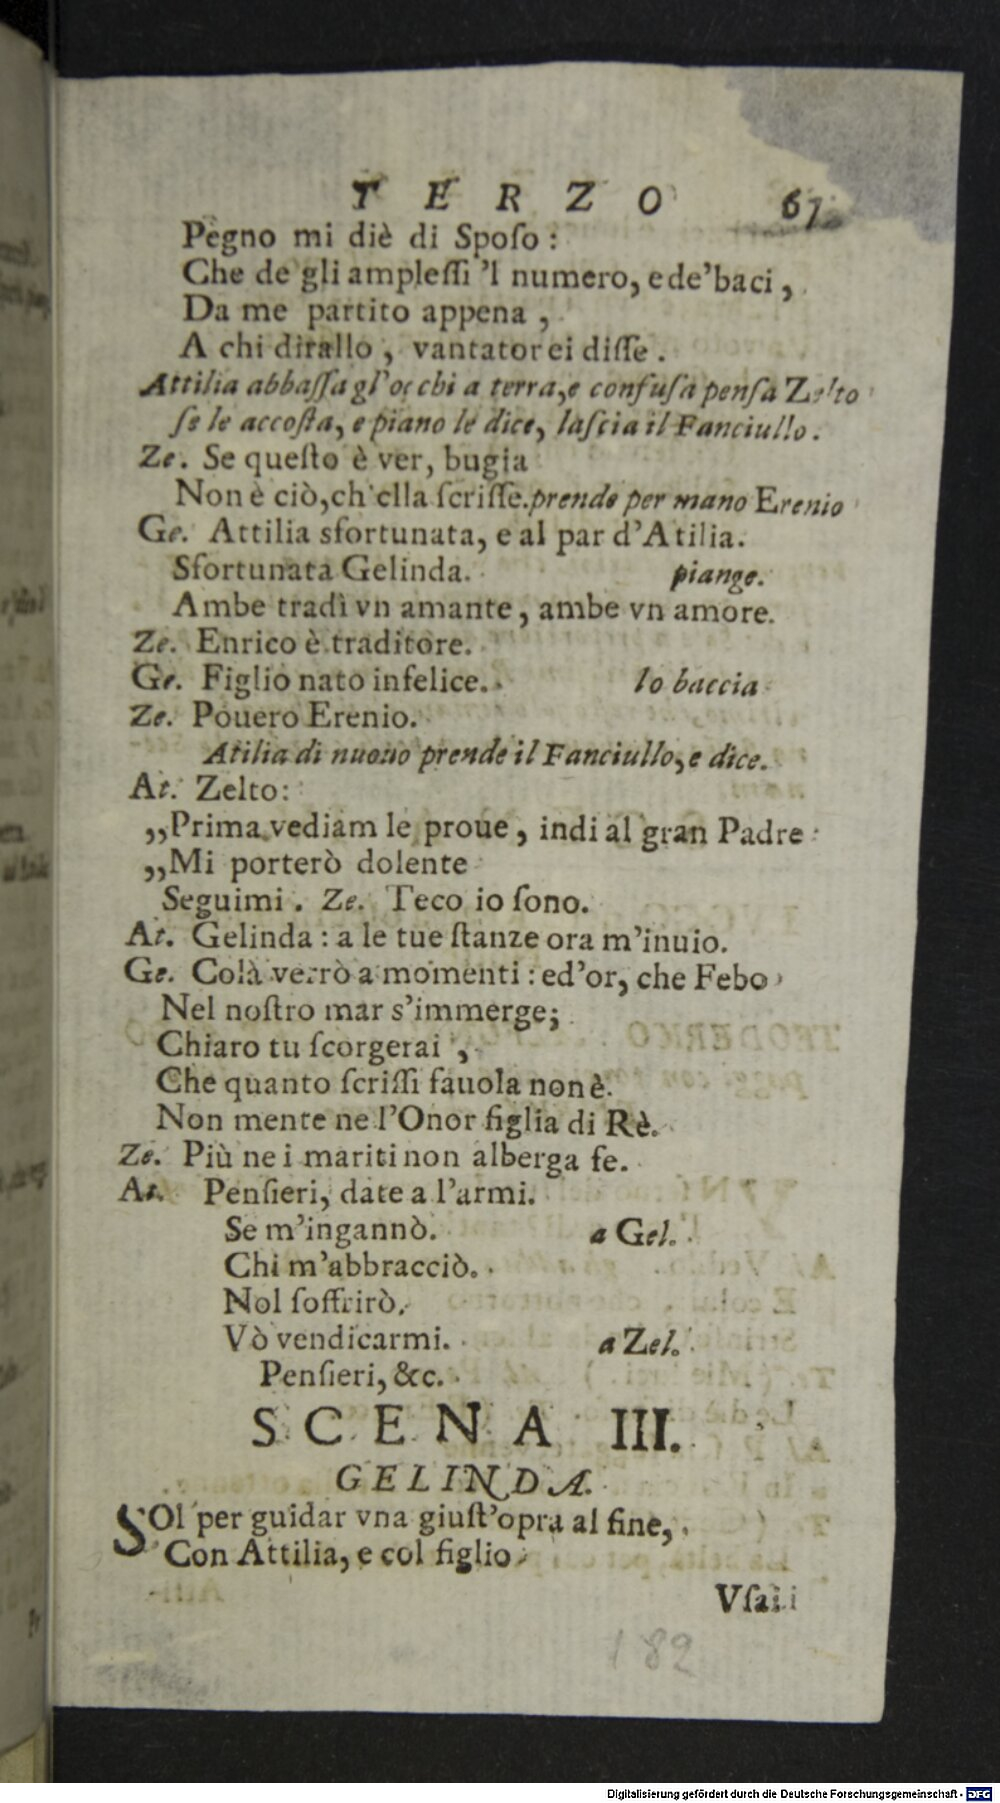 TERZO 67
Pegno mi diè di Spoſo :
Che de gli ampleſſi 'l numero, e de'baci ,
Da me partito appena ,
A chi dirallo , vantator ei diſſe .
Attilia abbaſſa gl'occhi a terra,e confuſa penſa Zelto
ſe le accoſta, e piano le dice, laſcia il Fanciullo .
Ze. Se queſto è ver, bugia
Non è ciò,ch'ella ſcriſſe.prende per mano Erenio
Ge. Attilia sfortunata, e al par d'Atilia.
Sfortunata Gelinda. piange.
Ambe tradì vn amante, ambe vn amore.
Ze. Enrico è traditore.
Ge. Figlio nato infelice. lo baccia
Ze. Pouero Erenio.
Atilia di nuouo prende il Fanciullo, e dice.
At. Zelto:
,,Prima vediam le proue, indi al gran Padre
,,Mi porterò dolente
Seguimi . Ze. Teco io ſono.
At. Gelinda : a le tue ſtanze ora m'inuio.
Ge. Colà verrò a momenti : ed'or, che Febo
Nel noſtro mar s'immerge;
Chiaro tu ſcorgerai ,
Che quanto ſcriſſi fauola non è.
Non mente ne l'Onor figlia di Rè.
Ze. Più ne i mariti non alberga fe.
At. Penſieri, date a l'armi.
Se m'ingannò. a Gel.
Chi m'abbracciò.
Nol ſoffrirò.
Vò vendicarmi. a Zel.
Penſieri, &c.
SCENA III.
GELINDA.
SOl per guidar vna giuſt'opra al fine,
Con Attilia, e col figlio
Vſai
182
Digitalisierung gefördert durch die Deutsche Forschungsgemeinschaft - DFG